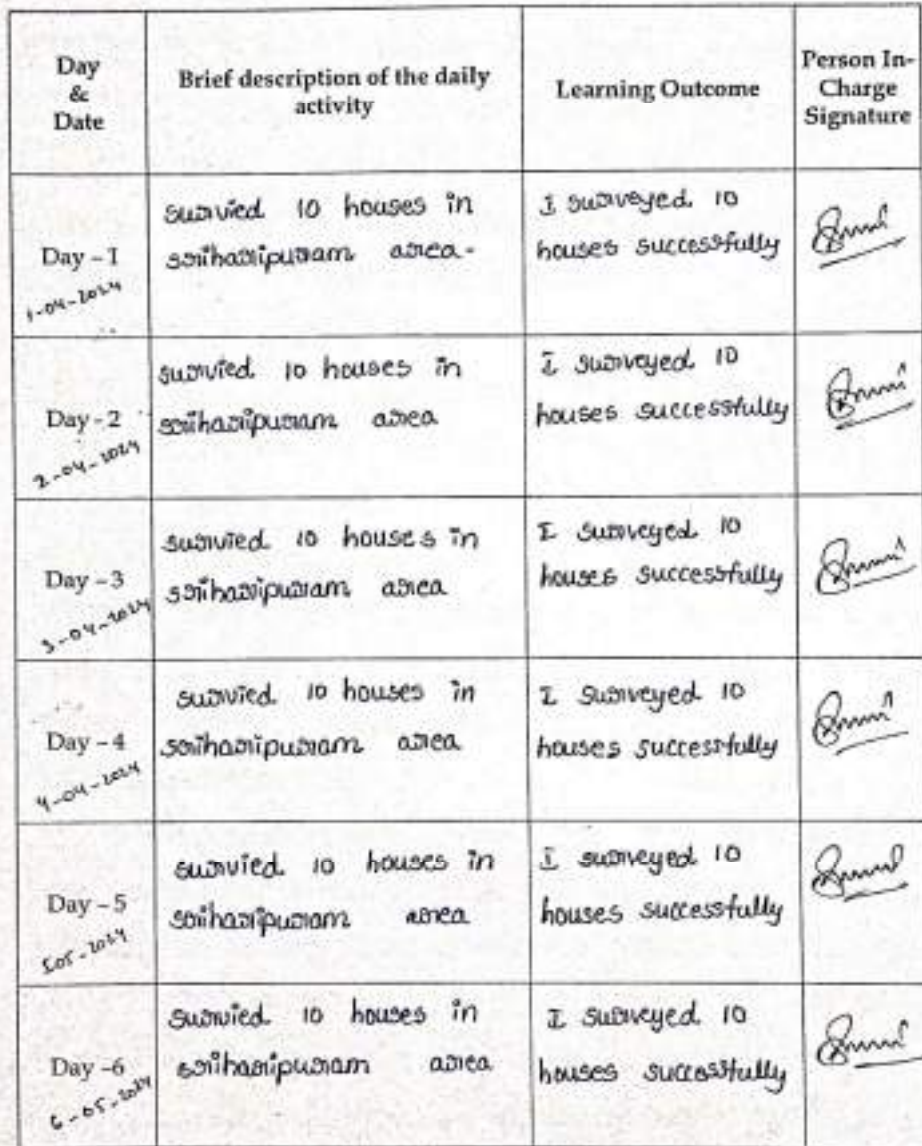 Day
&
Date
Brief description of the daily
activity
Learning Outcome
Person In-
Charge
Signature
Day – 1
1-04-2024
survied 10 houses in
sriharipuram area-
I surveyed 10
houses successfully
Day - 2
2-04-2024
survied 10 houses in
sriharipuram area
I surveyed 10
houses successfully
Day – 3
3-04-2024
survied 10 houses in
sriharipuram area
I surveyed 10
houses successfully
Day – 4
4-04-2024
survied 10 houses in
sriharipuram area
I surveyed 10
houses successfully
Day – 5
5-05-2024
survied 10 houses in
sriharipuram area
I surveyed 10
houses successfully
Day –6
6-05-2024
survied 10 houses in
sriharipuram area
I surveyed 10
houses successfully